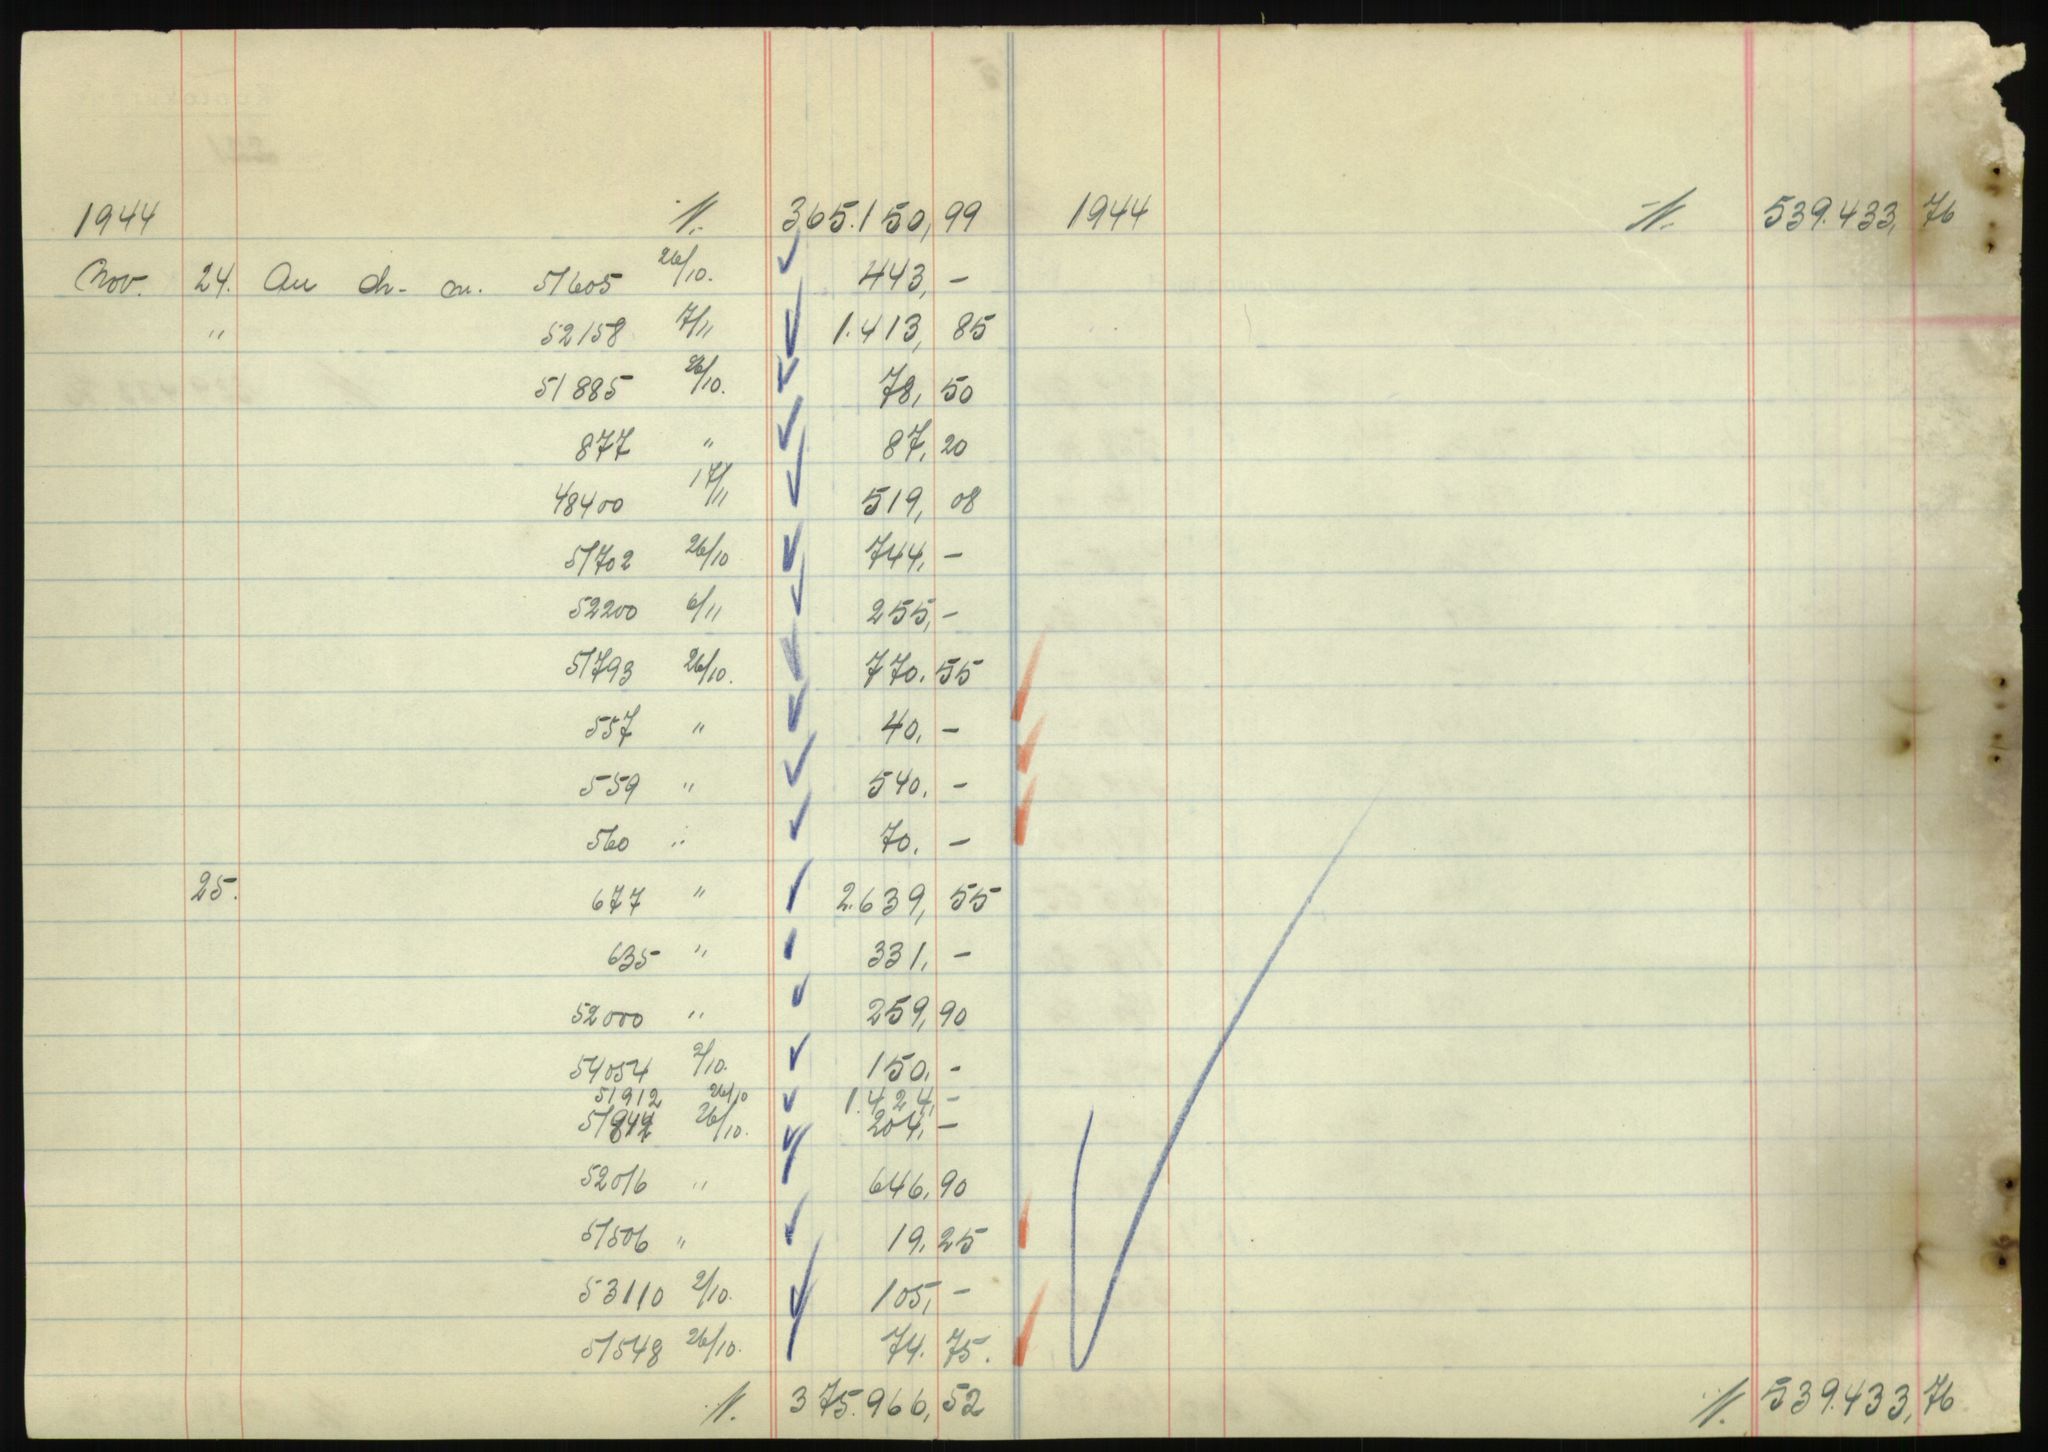 1944 ·/. 365.150,99 1944 ·/. 539.433,76
Nov. 24. An ch- cu. 51605 26/10. 443,-
" 52158 7/11 1.413,85
51885 26/10. 78,50
877 " 87,20
48400 17/11 519,08
51702 26/10 744,-
52200 6/11 255,-
51793 26/10. 770.55
557 " 40,-
559 " 540,-
560 " 70.-
25. 677 " 2.639,55
635 " 331,-
52000 " 259,90
54054 2/10. 150,-
51912 26/10 1.424,-
26/10. 204,-
52016 " 646,90
51506 " 19,25
53110 2/10. 105,-
51548 26/10. 74.75.
·/. 375.966,52 ·/. 539.433,76